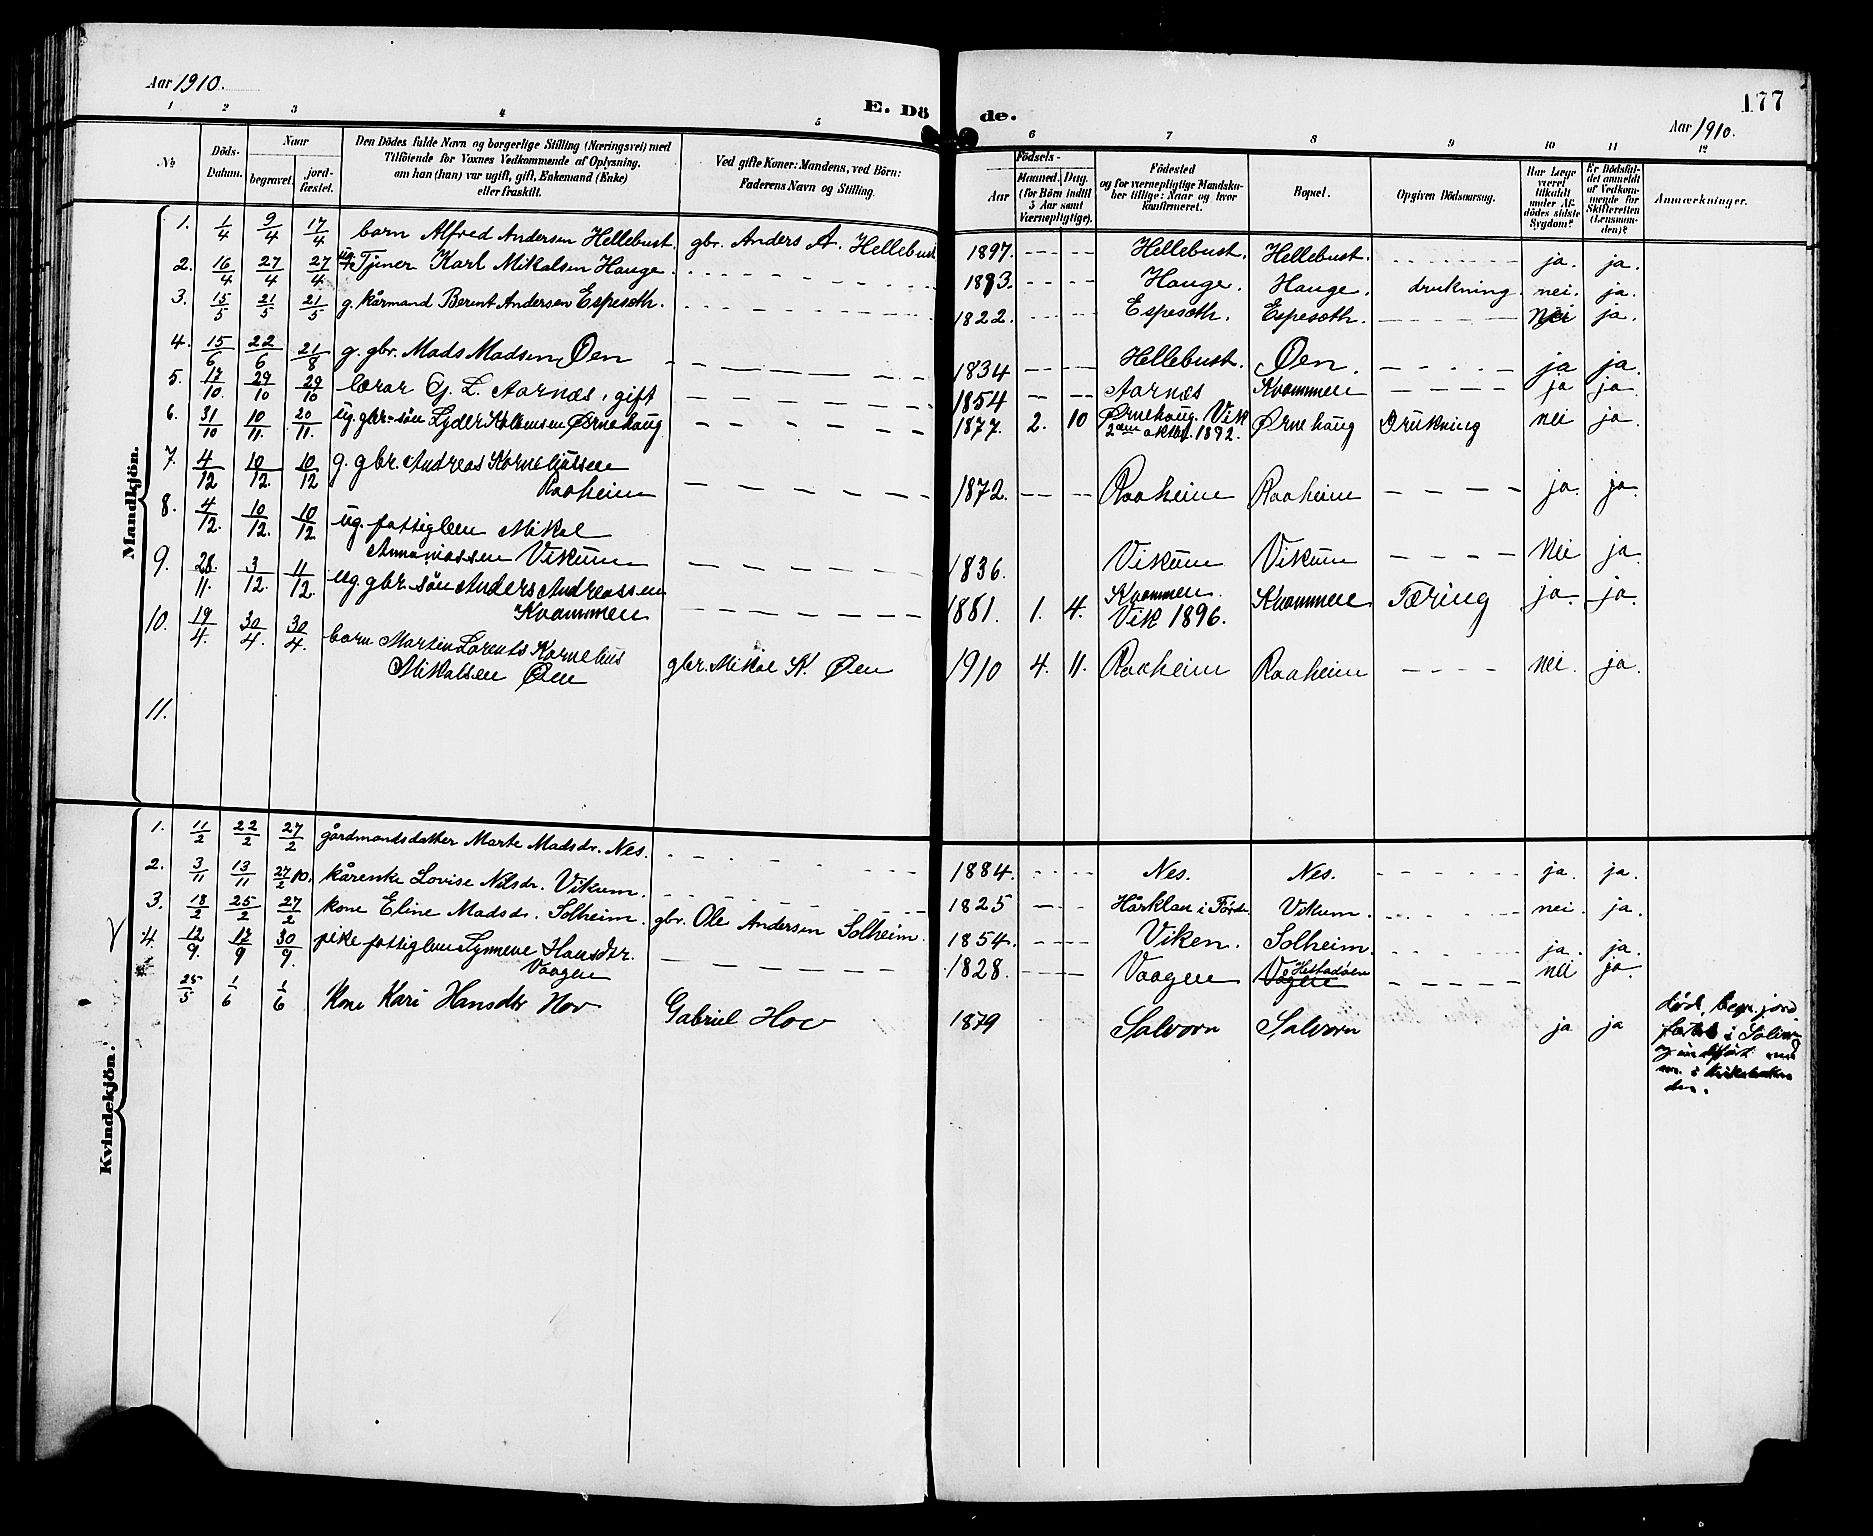 Aar 1910.
E. Dö de.
177
Aar 1910.
1 2 3 4 5 6 7 8 9 10 11 12
No
Döds-Datum.
Naar
begravet.
jord-fæstet.
Den Dödes fulde Navn og borgerlige Stilling (Næringsvei) med
Tilföiende for Voxnes Vedkommende af Oplysning,
om han (hun) var ugift, gift, Enkemand (Enke)
eller fraskilt.
Ved gifte Koner: Mandens, ved Börn:
Faderens Navn og Stilling.
Födsels-
Aar
Maaned. Dag.
(for Börn indtil
5 Aar samt
Værnepligtige).
Födested
og for værnepligtige Mandska-
ber tillige: Naar og hvor
konfirmeret.
Bopæl.
Opgiven Dödsaarsag.
Har Læge
været
tilkaldt
under Af-
dödes sidste
Sygdom?
Er Dödsfal-
det anmeldt
af Vedkom-
mende for
Skifteretten
(Lensman-
den)?
Anmærkninger.
Mandkjön.
1. 1/4 9/4 17/4 barn Alfred Andersen Hellebust. gbr. Anders A. Hellebust 1897. - - - - - Hellebust. Hellebust. - - - - - - ja. ja.
2. 16/4 27/4 27/4 ug. Tjener Karl Mikalsen Hauge. - - - - - - 1893. - - - - - Hauge. Hauge. drukning. nei. ja.
3. 15/5 21/5 21/5 g. kårmand Berent Andersen Espeseth. - - - - - - 1822. - - - - - Espeseth. Espeseth. - - - - - nei ja.
4. 15/6 22/6 21/8 g. gbr. Mads Madsen Øen - - - - - - 1834 - - - - - Hellebust. Øen. - - - - - ja ja.
5. 17/10. 29/10 29/10 lærar G. L. Aarnæs, gift - - - - - - 1854 - - - - Aarnæs Kvammen - - - - - ja ja.
6. 31/10 10/11. 20/11. ug. gbr.-søn Lyder Kolbensen Ørnehaug - - - - - - 1877. 2. 10 Ørnehaug. Vik
2den oktbr. 1892. Ørnehaug Drukning nei ja.
7. 4/12 10/12. 10/12 g. gbr. Andreas Korneliussen
Raaheim - - - - - - 1872. - - - - Raaheim Raaheim - - - - ja. ja.
8. 4/12. 10/12. 10/12 ug. fattiglem Mikal
Annaniassen Vikum - - - - - - 1836. Vikum Vikum - - - - Nei ja
9. 28./11. 3/12. 11/12. ug. gbr. søn Anders Andreassen
Kvammen - - - - - - 1881. 1. 4. Kvammen.
Vik 1896. Kvammen Tæring ja. ja.
10. 19/4. 30/4. 30/4. barn Martin Lorents Kornelius
Mikalsen Øen gbr. Mikal K. Øen 1910 4. 11. Raaheim Raaheim - - - - nei. ja.
11.
Kvindekjön.
1. 11/2 22/2 27/2 gårdmandsdatter Marte Madsdr. Nes. - - - - - - 1884. - - - - Nes. Nes. - - - - - - ja. ja.
2. 3/11 13/11 27/2 10. kårenke Lovise Nilsdr. Vikum. - - - - - - 1825 - - - Hårklau i Førde. Vikum. - - - - - nei. ja.
3. 18/2 25/2 27/2 kone Eline Madsdr. Solheim. gbr. Ole Andersen Solheim. 1854. - - - - Viken. Solheim. - - - - - ja. ja.
4. 12/9. 17/9 30/9. pike fattiglem Synneve Hansdtr.
Vaagen - - - - - - 1828. - - - - Vaagen Vågene Hestadøen - - - - - nei ja.
25/5 1/6 1/6 Kone Kari Hansdtr Hov Gabriel Hov 1879 Salvorn Salvorn ja ja
død, begr. jord
fæstet i Solvorn
og indført med
no. i kirkeboken
der.